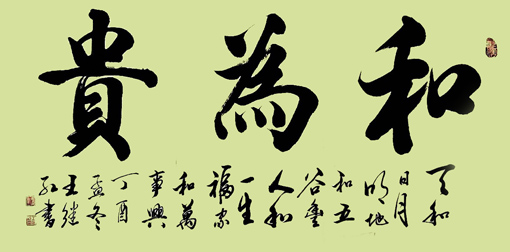 和為貴
天和
日月
明地
和五
谷豐
人和
一生
福家
和萬
事興
丁酉
孟冬
王继
红書